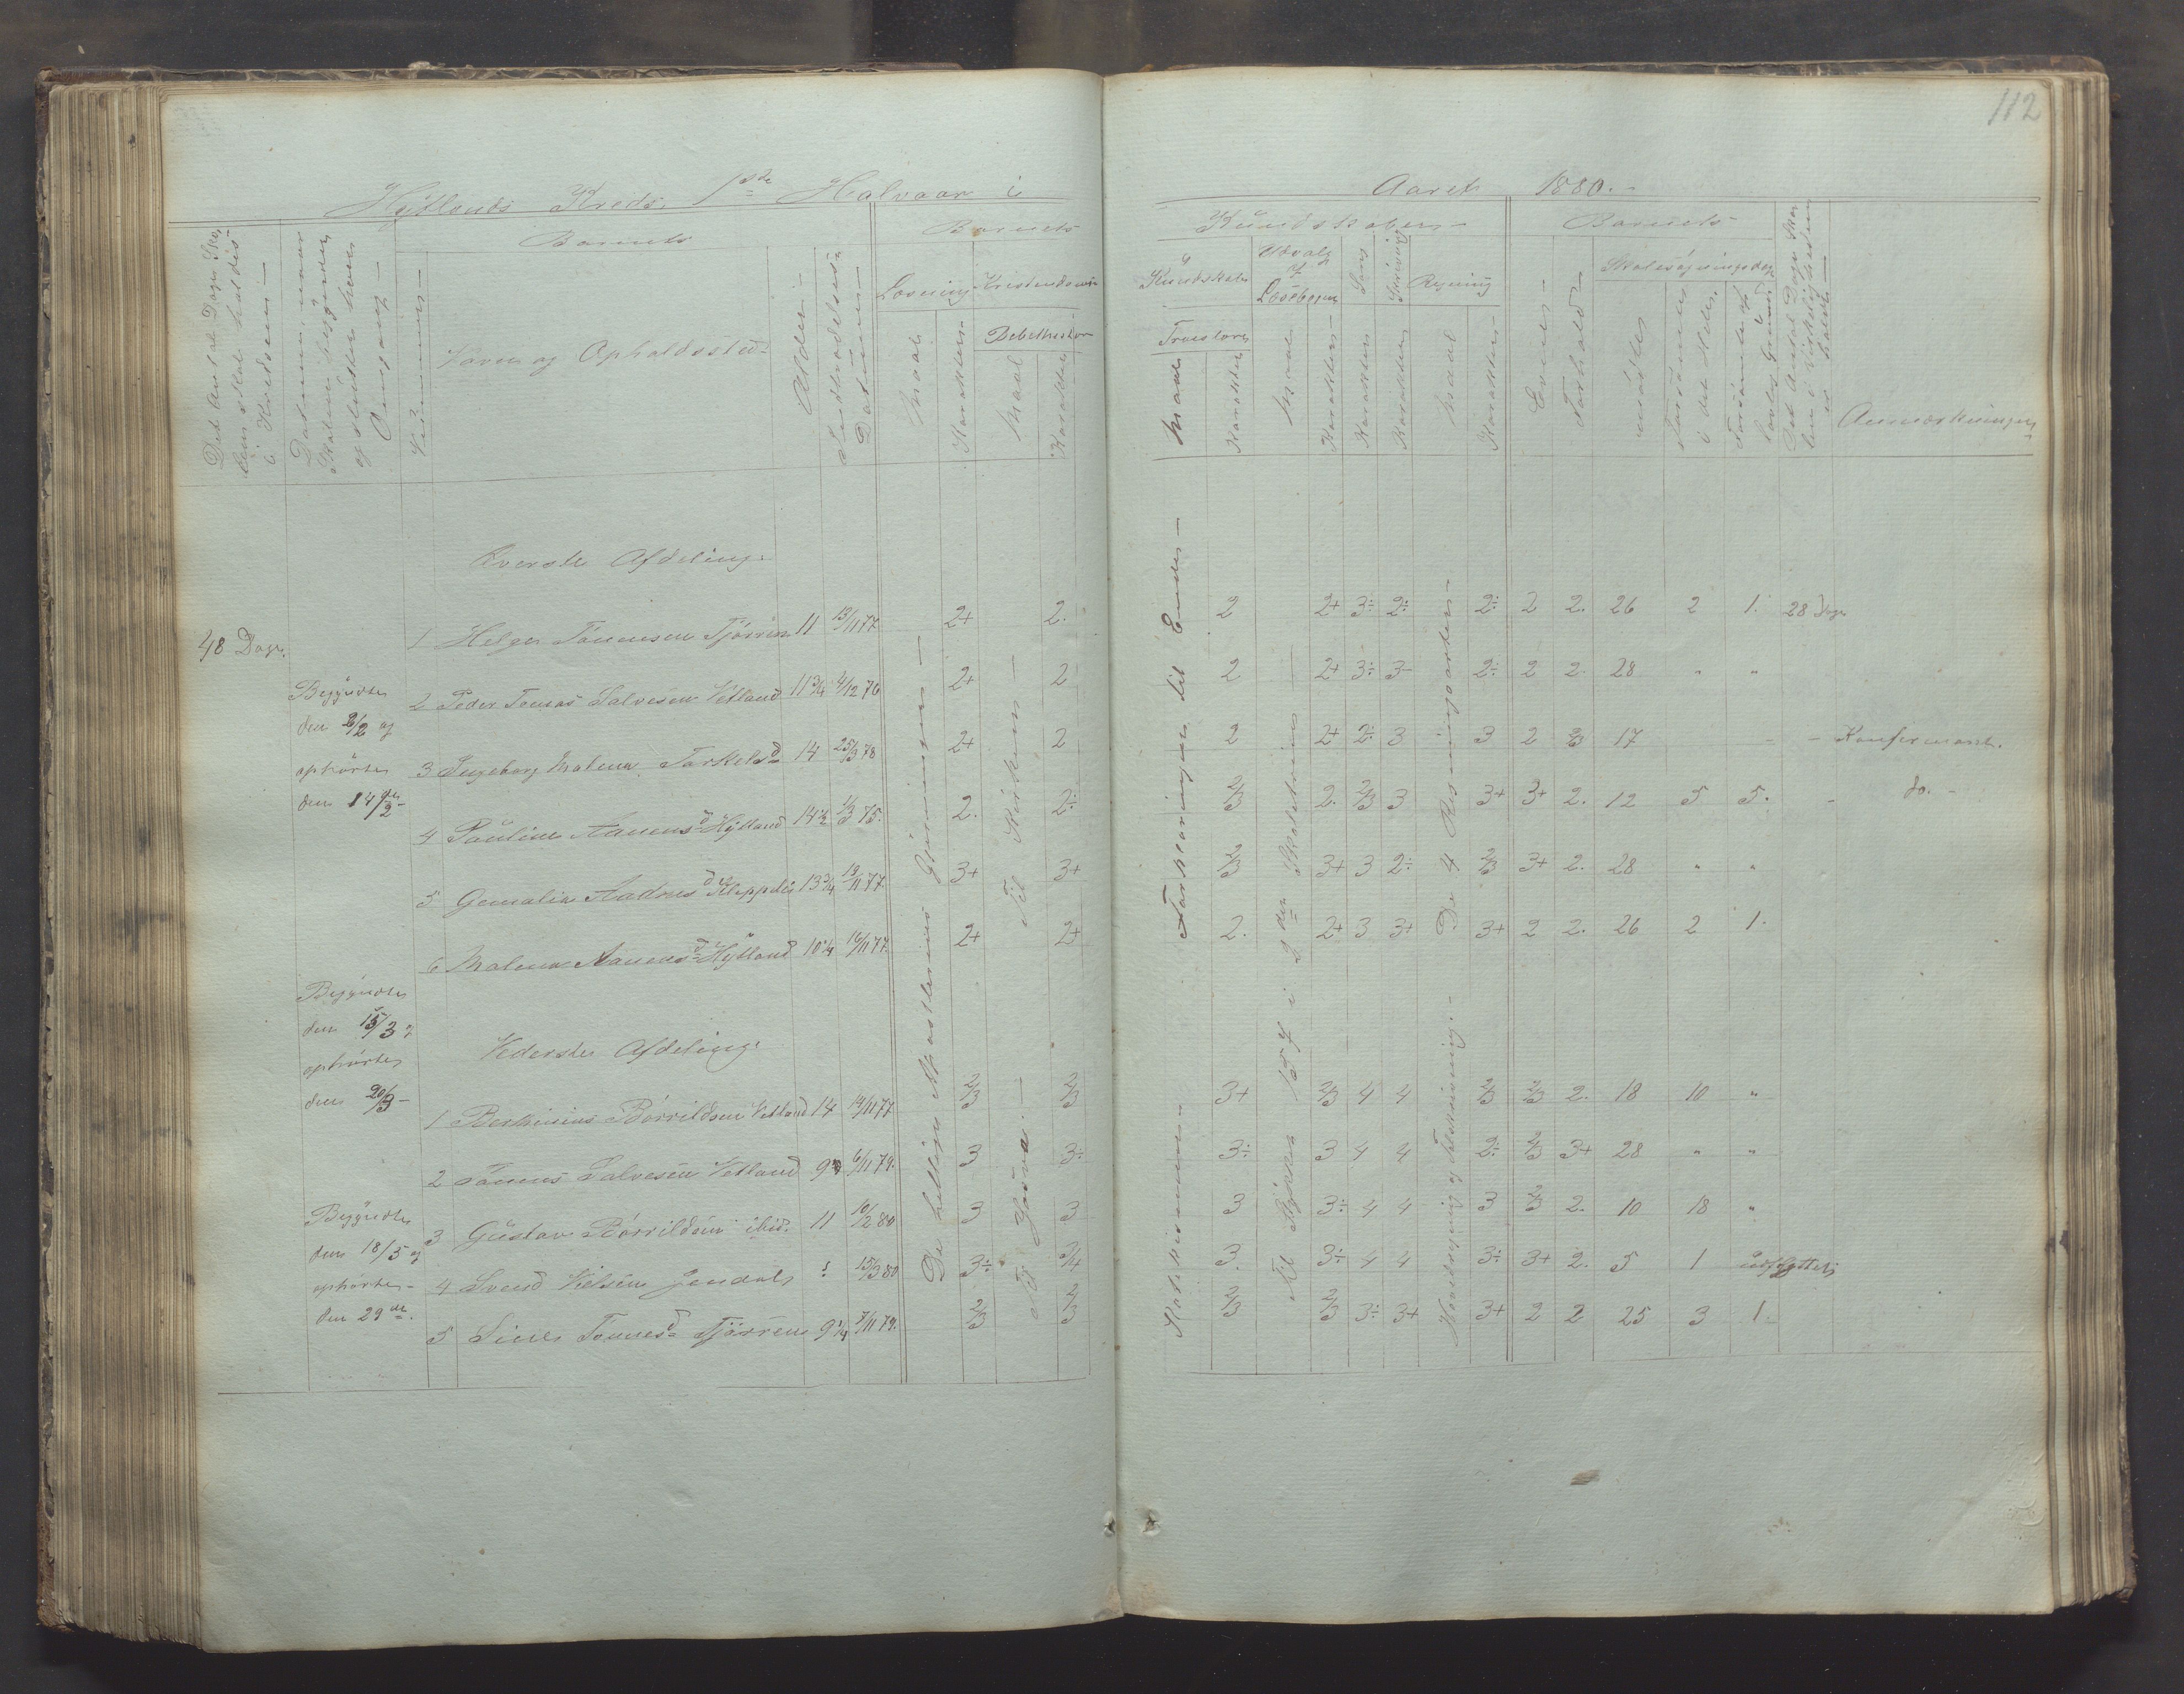 112
Hytlands Kreds. 1ste Halvaar i Aaret 1880.
Det Antal Dage Skolen skal holdes i Kredsen
Datum, naar Skolen begynder og slutter hver Omgang
Nummer
Barnets
Navn og Opholdssted
Alder
Indtrædelses Datum
Barnets
Læsning
Maal
Karakter
Kristendoms-
Bibelhistorie
Maal
Karakter
Kundskaber
Kundskab
Troeslære
Maal
Karakter
Udvalg af Læsebogen
Maal
Karakter
Sang
Karakter
Skrivning
Karakter
Regning
Maal
Karakter
Barnets
Evner
Forhold
Skolesøgningsdage
mødte
forsømte i det Hele.
forsømte af lovlig Grund
Det Antal Dage Skolen i Virkeligheden er holdt
Anmærkninger
48 Dage.
Begyndte
den 2/2 og
ophørte
den 14de/2
Begyndte
den 15/3 og
ophørte
den 20/3
Begyndte
den 18/5 og
ophørte
den 29de.
Øverste Afdeling.
1 Helge Tønnesen Tjørrin 11 13/11 77 2+ 2. 2 2+ 3÷ 2÷ 2÷ 2 2. 26 2 1. 28 Dage
2 Peder Tomas Salvesen Vetland 11 3/4 4/12 76 2+ 2 2 2+ 3÷ 3- 2÷ 2 2 28 " "
3 Ingeborg Malene Torkelsd 14 25/3 78 2+ 2 2 2+ 2÷ 3 3 2 3 17 - - Konfirmant.
4 Pauline Aanensd Hytland 14 1/2 1/3 75. 2. 2÷ 2/3 2. 2/3 3 3+ 3+ 2. 12 5 5. - do. -
5 Gemalie Andreasd Kleppeli 13 3/4 13/11 77. 3+ 3+ 2/3 3+ 3 2÷ 2/3 3+ 2. 28 " "
6 Malene Aanensd Hytland 10 1/4 16/11 77. 2+ 2+ 2. 2+ 3 3+ 3+ 2 2. 26 2 1.
Nederste Afdeling.
1 Berthinius Børrildsen Vetland 14 14/11 77 2/3 2/3 3+ 2/3 4 4 2/3 2/3 2. 18 10 "
2 Tønnes Salvesen Vetland 9 6/11 79. 3 3÷ 3÷ 3 4 4 2÷ 2/3 3+ 28 " "
3 Gustav Børrildsen ibid. 11 10/2 80 3 3 3 3÷ 4 4 3 2/3 2. 10 18 "
4 Svend Nilsen Jendal ? 15/3 80 3÷ 3/4 3. 3÷ 4 4 3÷ 3+ 2. 5 1 udflyttet
5 Sine Tønnesd Tjørrin 9 1/4 7/11 79. 2/3 2/3 2/3 2/3 3÷ 3+ 3+ 2 2 25 3 1.
Til Kirken
Forklaringen til Enden
Til Stykket 157 i 2den Skoletrin
De 4 Regningsarter